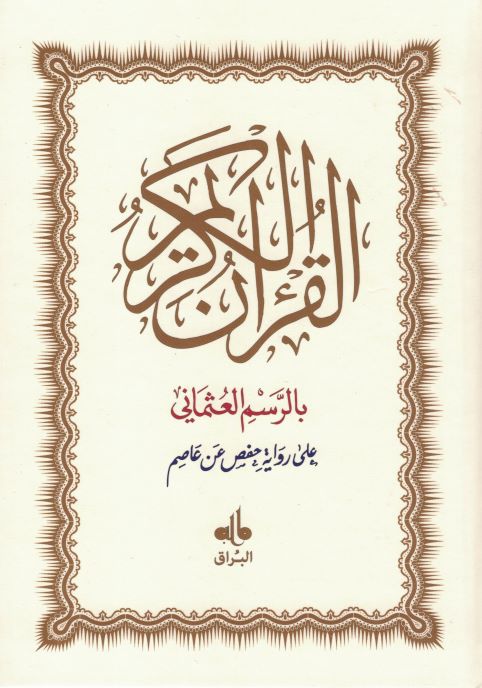 القرآن الكريم
بالرَّسْمِ العُثْمَانِي
على رِوَايَةِ حَفْصٍ عَنْ عَاصِم
البُراق